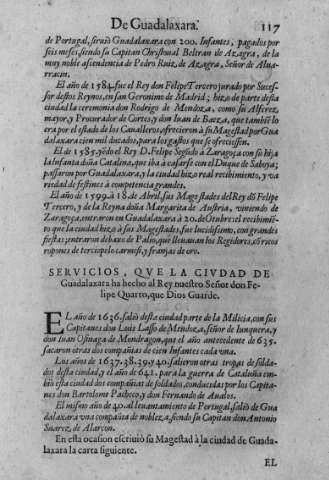 De Guadalaxara. 117
de Portugal, siruiò Guadalaxara con 200. Infantes, pagados por
seis meses, siendo su Capitan Christoual Beltran de Azagra, de la
muy noble ascendencia de Pedro Ruiz de Azagra, Señor de Alua-
rracin.
El año de 1584. fue el Rey don Felipe Tercero jurado por Suces-
sor destos Reynos, en san Geronimo de Madrid; hizo de parte desta
ciudad la ceremonia don Rodrigo de Mendoza, como su Alferez
mayor, y Procurador de Cortes, y don Iuan de Baeza, que tambiē lo
era por el estado de los Caualleros, ofrecieron à su Magestad por Gua
dalaxara cien mil ducados, para los gastos que se ofreciessen.
El de 1585. yēdo el Rey D. Felipe Segūdo à Zaragoça con su hija
la Infanta doña Catalina, que iba à casarse con el Duque de Saboya;
passaron por Guadalaxara, y la ciudad hizo real recibimiento, y va
riedad de festines à competencia grandes.
El año de 1599. à 18. de Abril, sus Magestades del Rey dō Felipe
Tercero, y de la Reyna doña Margarita de Austria, viniendo de
Zaragoça, entraron en Guadalaxara à 20. de Otubre: el recibimiē-
to que la ciudad hizo à sus Magestades, fue lucidissimo, con grandes
fiestas; entraron debaxo de Palio, que lleuauan los Regidores, cō roco
ropones de terciopelo carmesi, y franjas de oro.
SERVICIOS, QVE LA CIVDAD DE
Guadalaxara ha hecho al Rey nuestro Señor don Fe-
lipe Quarto, que Dios Guarde.
EL año de 1636. saliò desta ciudad parte de la Milicia, con sus
Capitanes don Luis Lasso de Mendoza, señor de Iunquera, y
don Iuan Osinaga de Mendragon, que el año antecedente de 635.
sacaron otras dos compañias de cien Infantes cada vna.
Los años de 1627. 28. 39. y 40. salieron otras tropas de solda-
dos desta ciudad, y el año de 642. para la guerra de Cataluña em-
biò esta ciudad dos compañias de soldados, conducidas por los Capita-
nes don Bartolome Pacheco, y don Fernando de Aualos.
El mismo año de 40. al leuantamiento de Portugal, saliò de Gua
dalaxara vna compañia de nobleza, siendo su Capitan don Antonio
Suarez, de Alarcon.
En esta ocasion escriuiò su Magestad à la ciudad de Guada-
laxara la carta siguiente.
EL